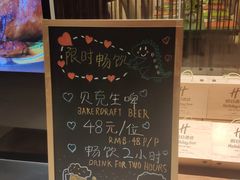 限时畅饮
贝克生啤
BAKERDRAFT BEER
48元/位
RMB·48P/P
畅饮2小时
DRINK FOR TWO HOURS